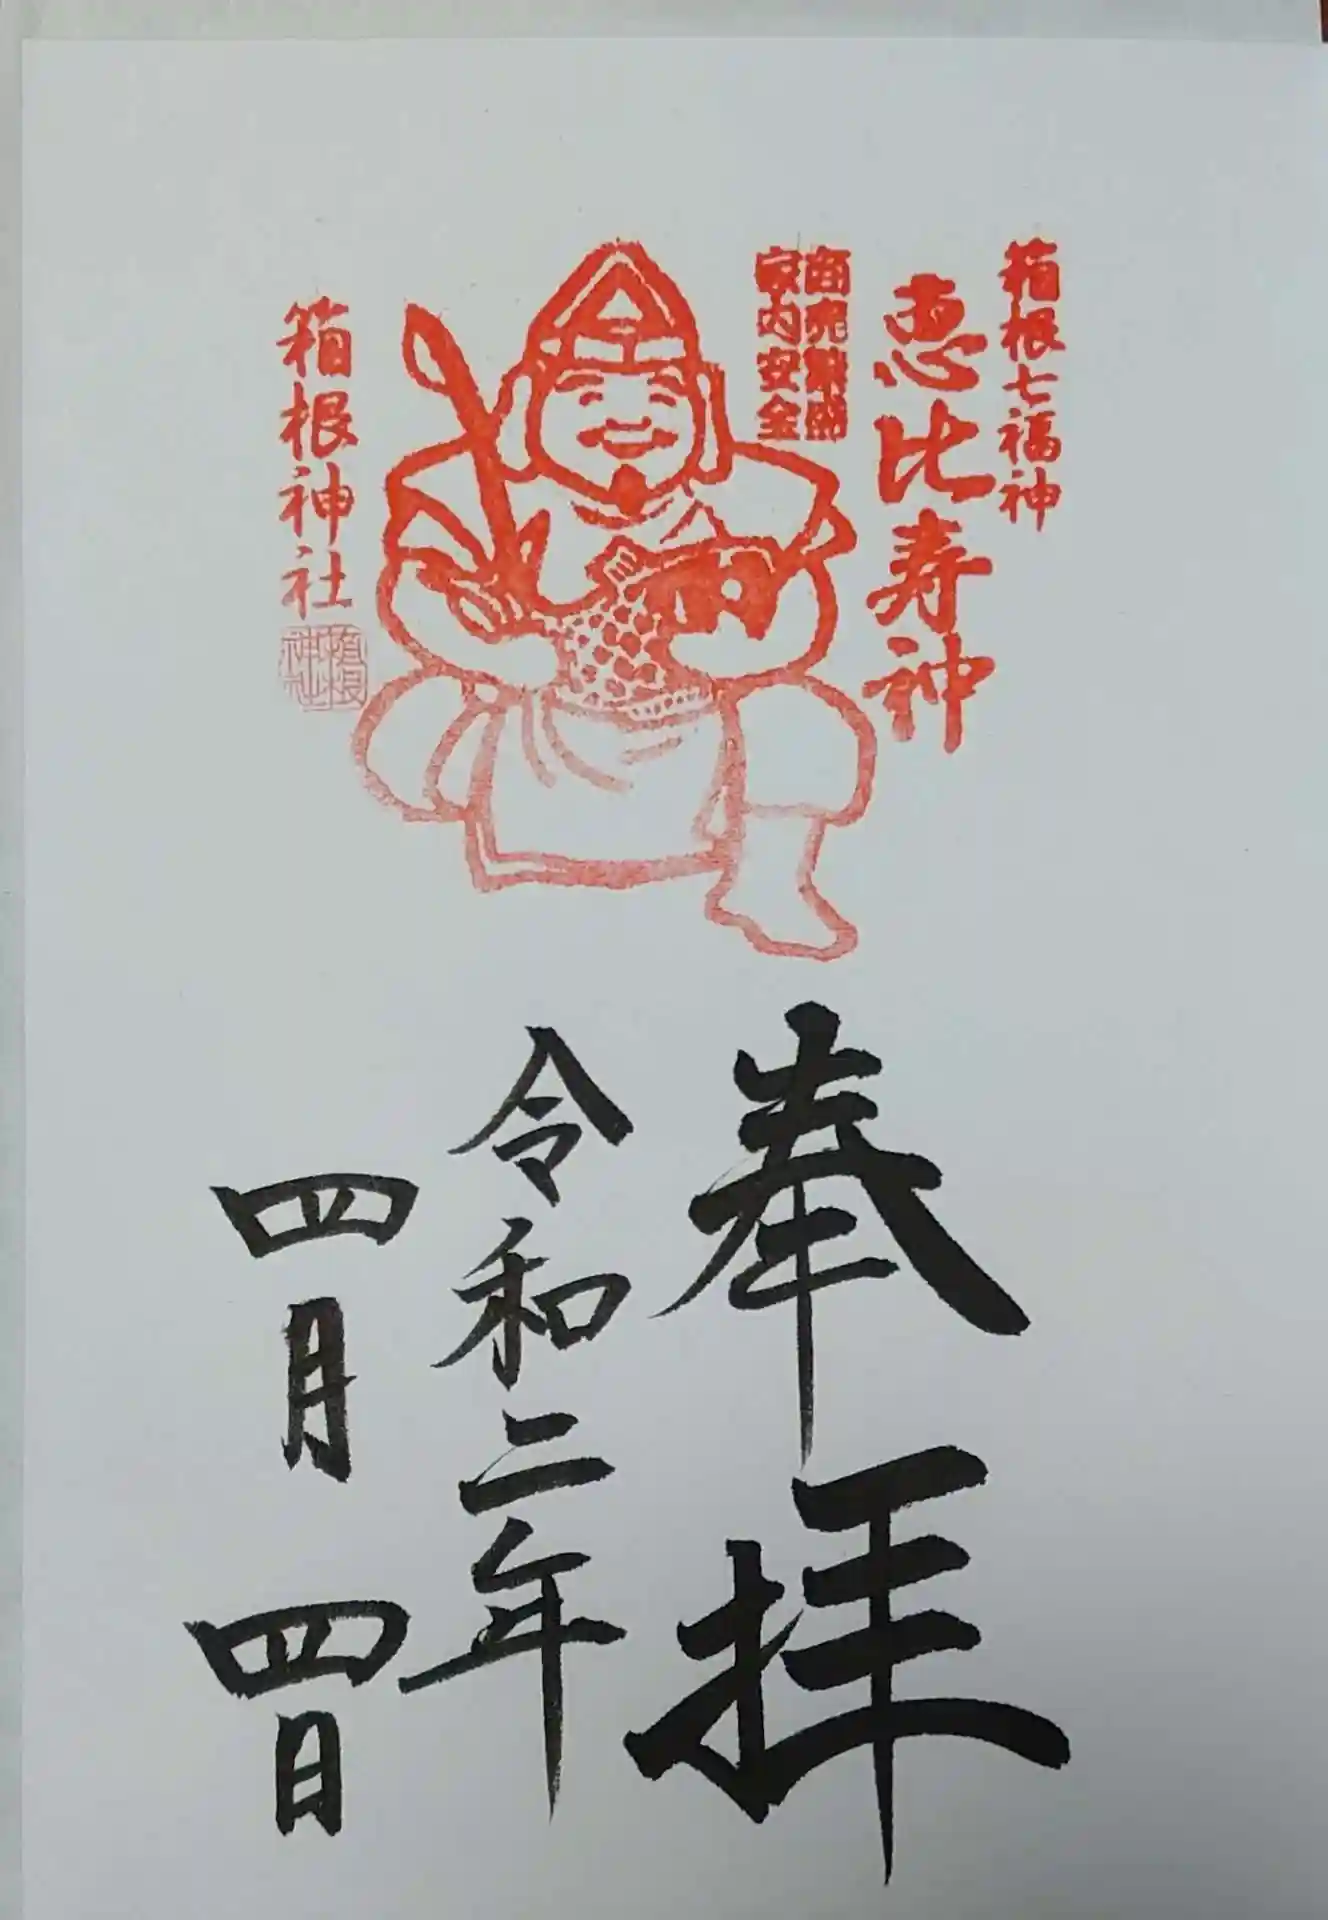 箱根七福神
恵比寿神
商売繁盛
家内安全
箱根神社
箱根神社
奉拝
令和二年
四月四日